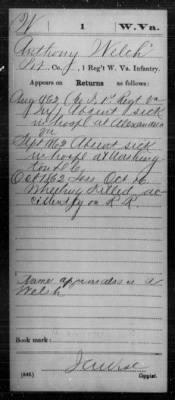 W 1 W.Va.
Anthony Welch
Pvt, Co. J, 1 Reg't W. Va. Infantry.
Appears on Returns as follows:
Aug 1862 Co J. 1st Regt Va
Inf, Absent sick
in hospl at Alexandria
Va
Sept 1862 Absent sick
in hospl at Washing
ton D.C.
Oct 1862 Loss Oct 16,
Wheeling Killed ac-
cidently on R R
Name appears also as A
Welsh
Book mark:
(546) Copyist.